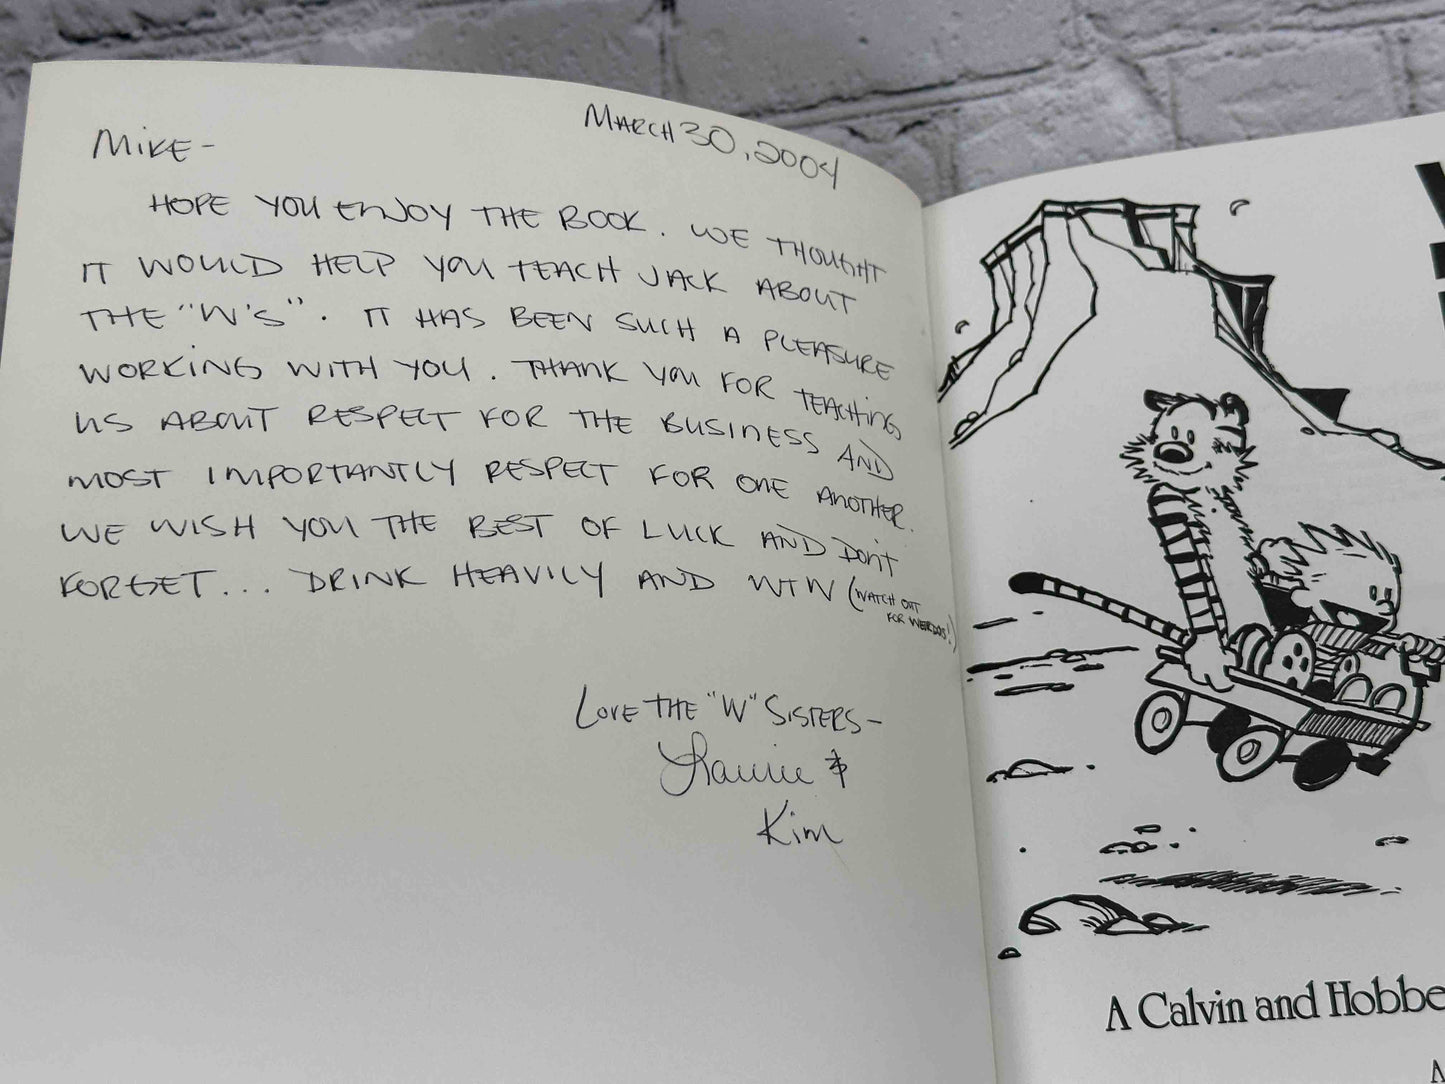 MARCH 30, 2004
MIKE -
HOPE YOU ENJOY THE BOOK. WE THOUGHT
IT WOULD HELP YOU TEACH JACK ABOUT
THE "W'S". IT HAS BEEN SUCH A PLEASURE
WORKING WITH YOU. THANK YOU FOR TEACHING
US ABOUT RESPECT FOR THE BUSINESS AND
MOST IMPORTANTLY RESPECT FOR ONE ANOTHER.
WE WISH YOU THE BEST OF LUCK AND DON'T
FORGET... DRINK HEAVILY AND WTW (WATCH OUT
FOR WEIRDOS!)
LOVE THE "W" SISTERS -
Laurie &
Kim
A Calvin and Hobbe